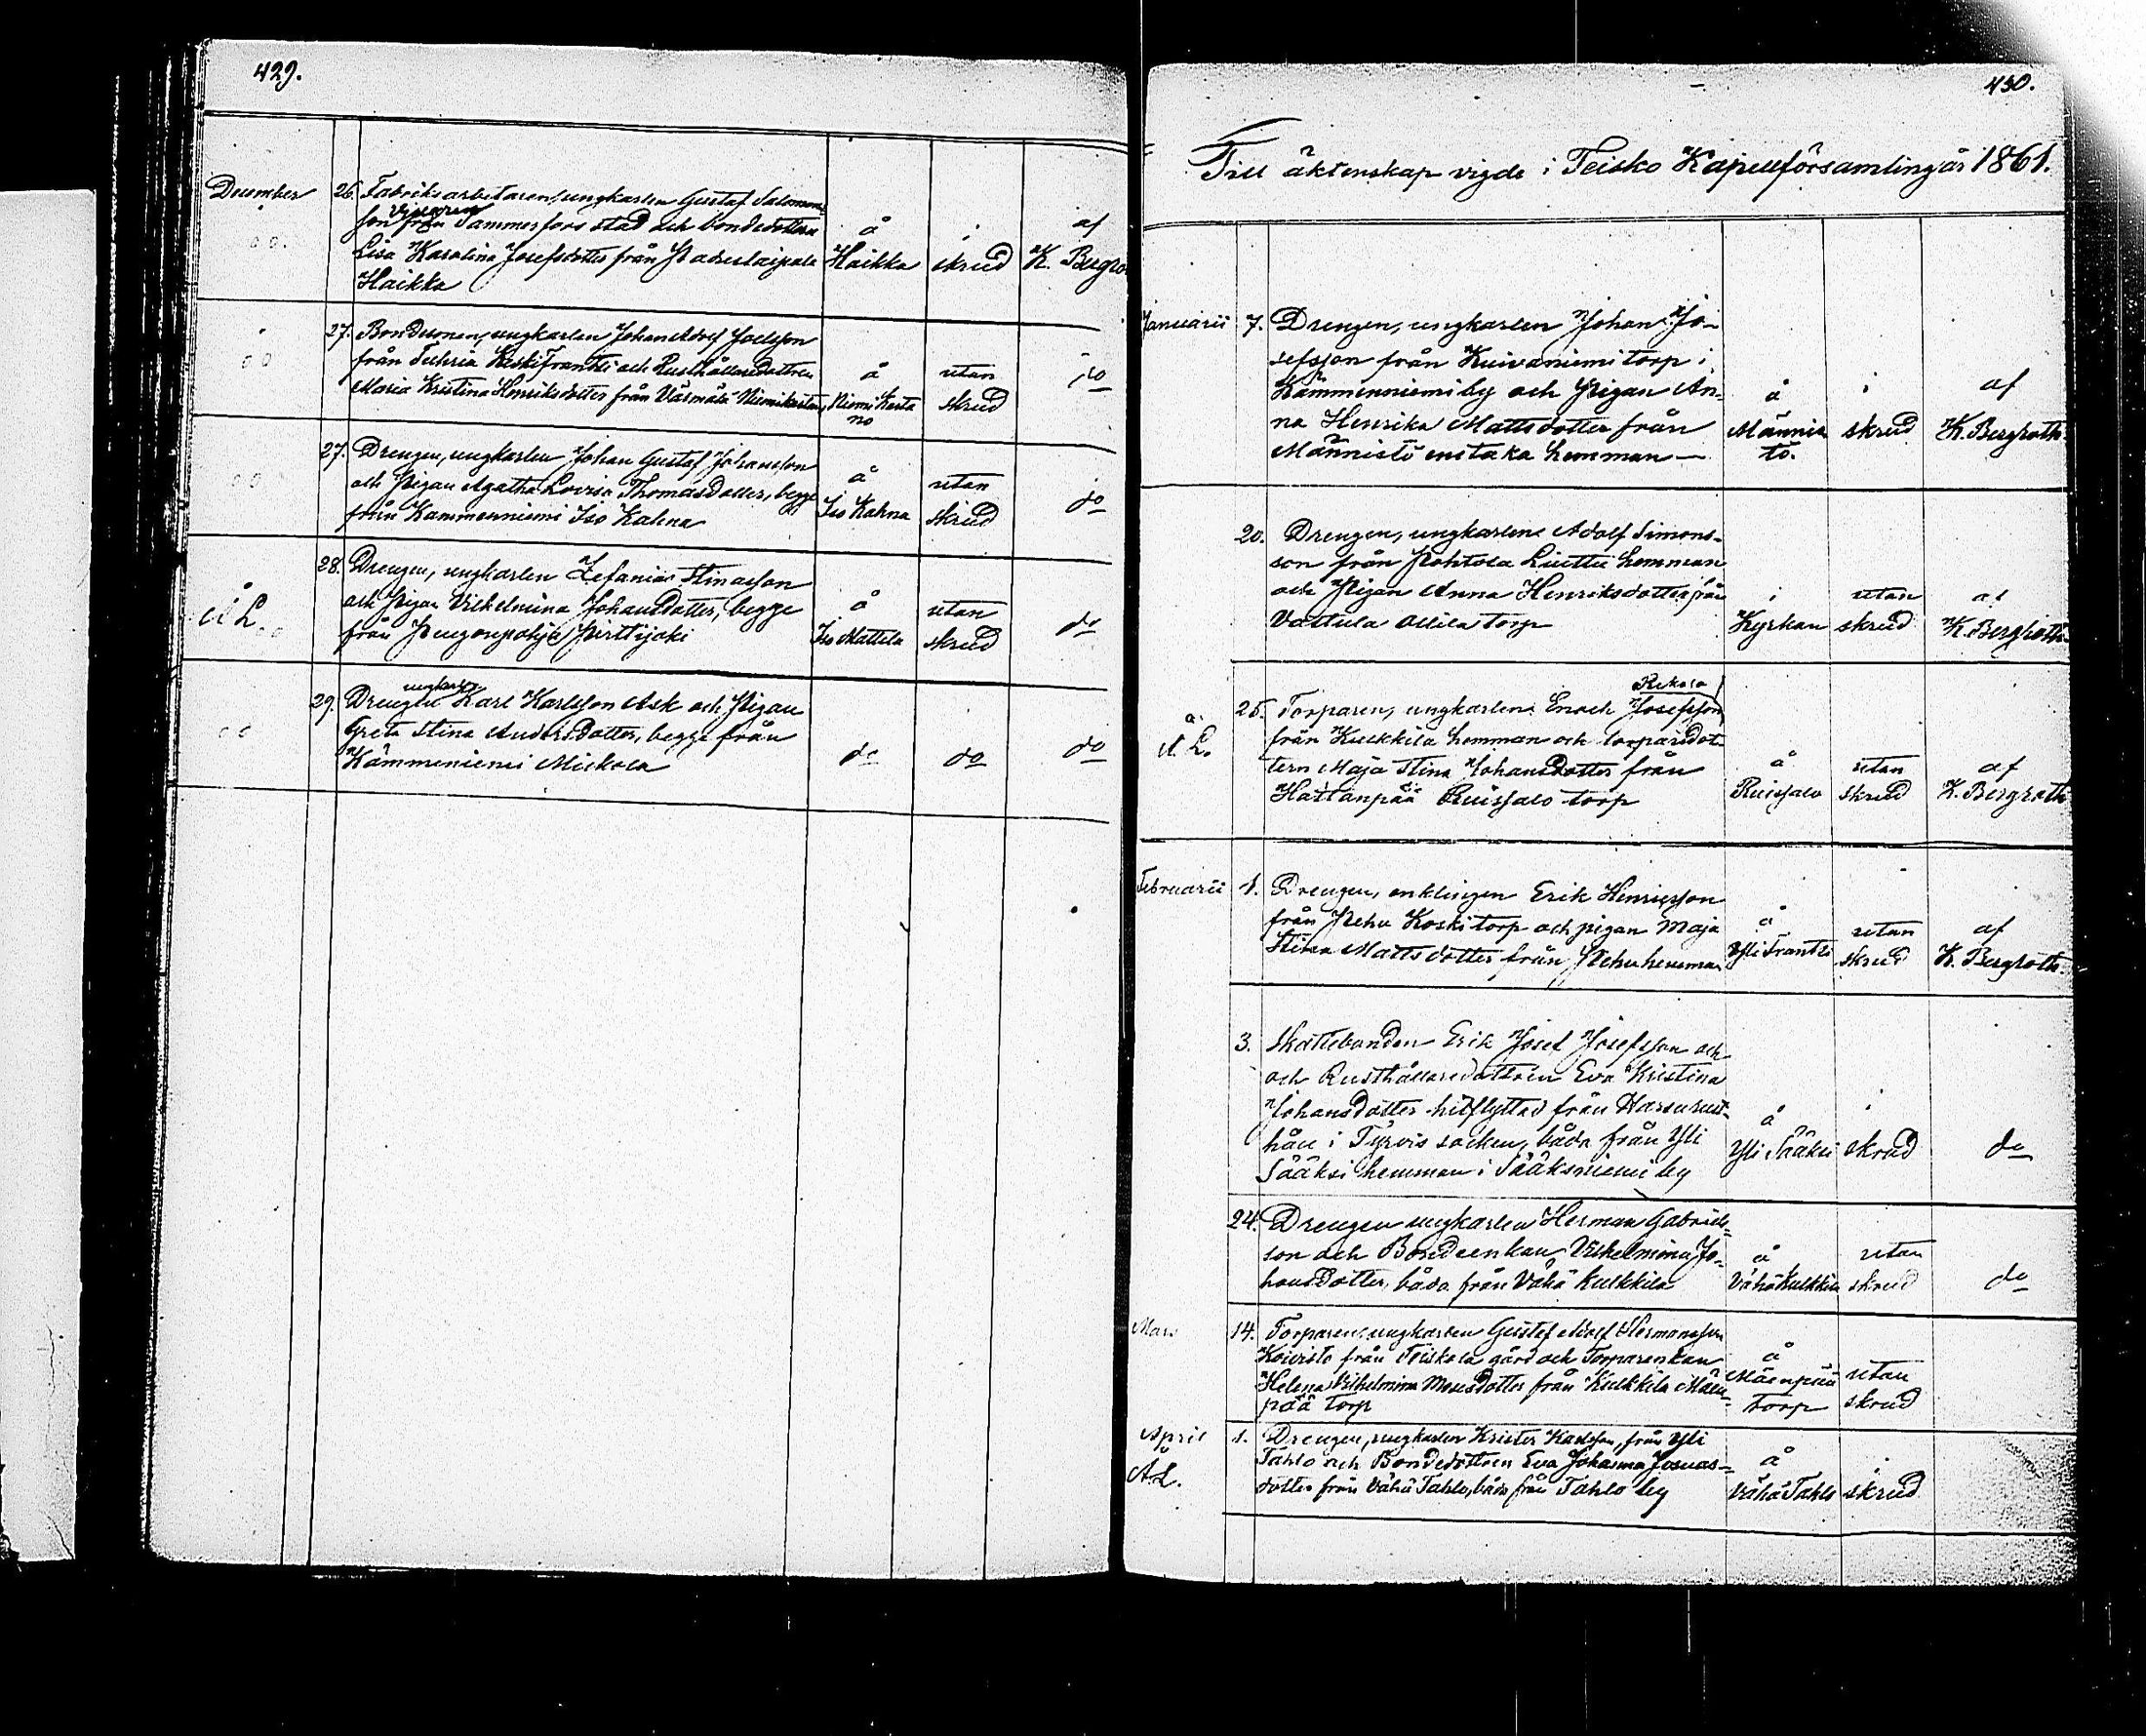 429.
December 26. Fabriksarbetaren, ungkarlen Gustaf Salomons-
son från Tammerfors stad och bondedottern å i af
Lisa Karolina Josefsdotter från Padustaipale Haikka skrud K. Bergro
Haikka
27. Bondesonen, ungkarlen Johan Adolf Joelsson
från Tuhria Keski Frantti och Rusthållaredottren å utan do
Maria Kristina Henriksdotter från Värmälä Niemikarta Niemi Karta skrud
no
27. Drengen, ungkarlen Johan Gustaf Johansson
och Pigan Agatha Lovisa Thomasdotter, begge å utan do
från Kämmenniemi Iso Kahna Iso Kahna skrud
28. Drengen, ungkarlen Zefanias Stinasson
A L. och Pigan Vilhelmina Johansdotter, begge å utan do
från Pengonpohja Pirttijoki Iso Mattila skrud
ungkarlen
29. Drengen Karl Karlsson Ask och Pigan
Greta Stina Andersdotter, begge från
Kämmeniemi Mickola do do do
430.
Till äktenskap vigde i Teisko Kapellförsamling år 1861.
Januarii 7. Drengen, ungkarlen Johan Jo-
sefsson från Kuivaniemi torp i
Kämmenniemi by och Pigan An- å i af
na Henrika Mattsdotter från Männis skrud K. Bergroth.
Männistö enstaka hemman — tö.
20. Drengen, ungkarlen Adolf Simons-
son från Pohtola Liuttu hemman
och Pigan Anna Henriksdotter från i utan af
Vattula Ollila torp Kyrkan skrud K. Bergroth.
Rekola
25. Torparen, ungkarlen Enoch Josefsson
A. L. från Kulkkila hemman och torparedot-
tern Maja Stina Johansdotter från å utan af
Hattanpää Ruissalo torp Ruissalo skrud K. Bergroth
Februarii 1. Drengen, enklingen Erik Henricsson
från Pehu Koski torp och pigan Maja å utan af
Stina Mattsdotter från Pehu hemman Yli Frantti skrud K. Bergroth.
3. Skattebonden Erik Josef Josefsson och
och Rusthållaredottren Eva Kristina
Johansdotter hitflyttad från rust-
håll i Tyrvis socken, båda från Yli å i
Sääksi hemman i Sääksniemi by Yli Sääksi skrud do
24. Drengen ungkarlen Herman Gabriels-
son och Bondeenkan Vilhelmina Jo- å utan
hansdotter, båda från Vähä Kulkkila Vähä Kulkkila skrud do
Mars 14. Torparen, ungkarlen Gustaf Adolf Hermansson
Koivisto från Teiskola gård och Torparenkan å
Helena Vilhelmina Mosesdotter från Kulkkila Mäen- Mäenpää utan
pää torp torp skrud
April 1. Drengen, ungkarlen Krister Karlsson, från Yli
A.L. Tahlo och Bondedottren Eva Johanna Josuas- å i
dotter från Vähä Tahlo, båda från Tahlo by Vähä Tahlo skrud